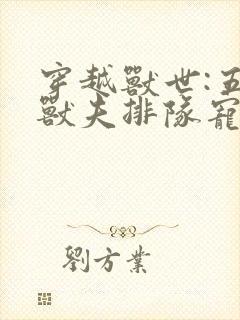 穿越獸世:五
獸夫排隊寵
劉方業